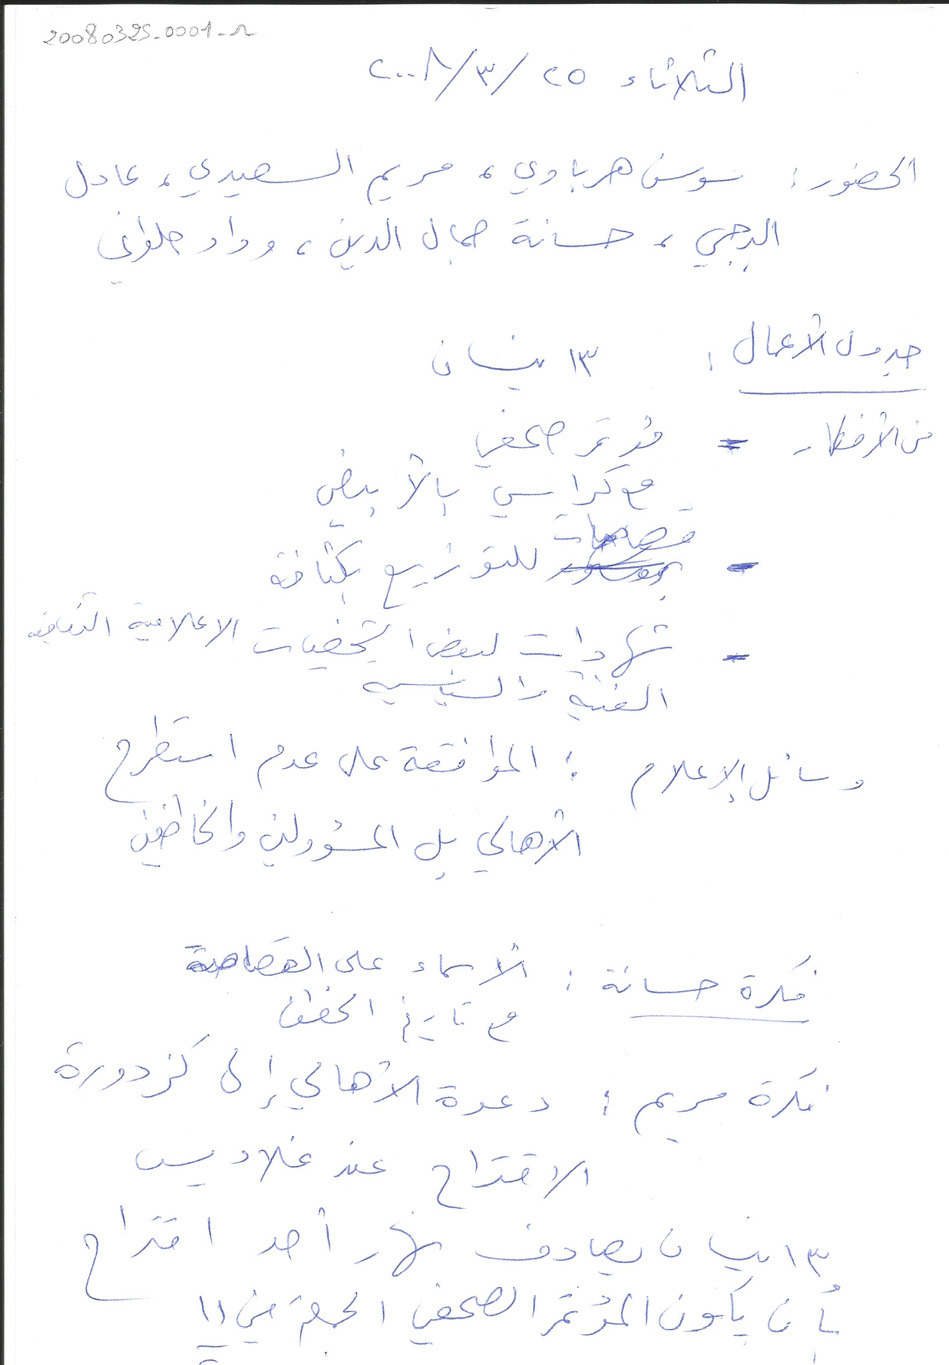 20080325_0001_n
الثلاثاء ٢٥/٣/٢٠٠٨
الحضور: سوسن هرباوي، مريم السعيدي، عادل
الرجي، حسانة جمال الدين، وداد حلواني
جدول الأعمال: ١٣ نيسان
من الأفكار = مؤتمر صحفي
مع كراسي بالأبيض
قصاصات
- للتوزيع بكثافة
- شهادات لبعض الشخصيات الاعلامية الثقافية
الفنية والسياسية
وسائل الإعلام: الموافقة على عدم استطرح
الأهالي بل المسؤولين والخاطفين
فكرة حسانة: الأسماء على القصاصة
مع تاريخ الخطف
فكرة مريم: دعوة الأهالي إلى كزدورة
الاقتراح عند غلاديس
١٣ نيسان يصادف نهار أحد اقتراح
بأن يكون المؤتمر الصحفي الجمعة في ١١